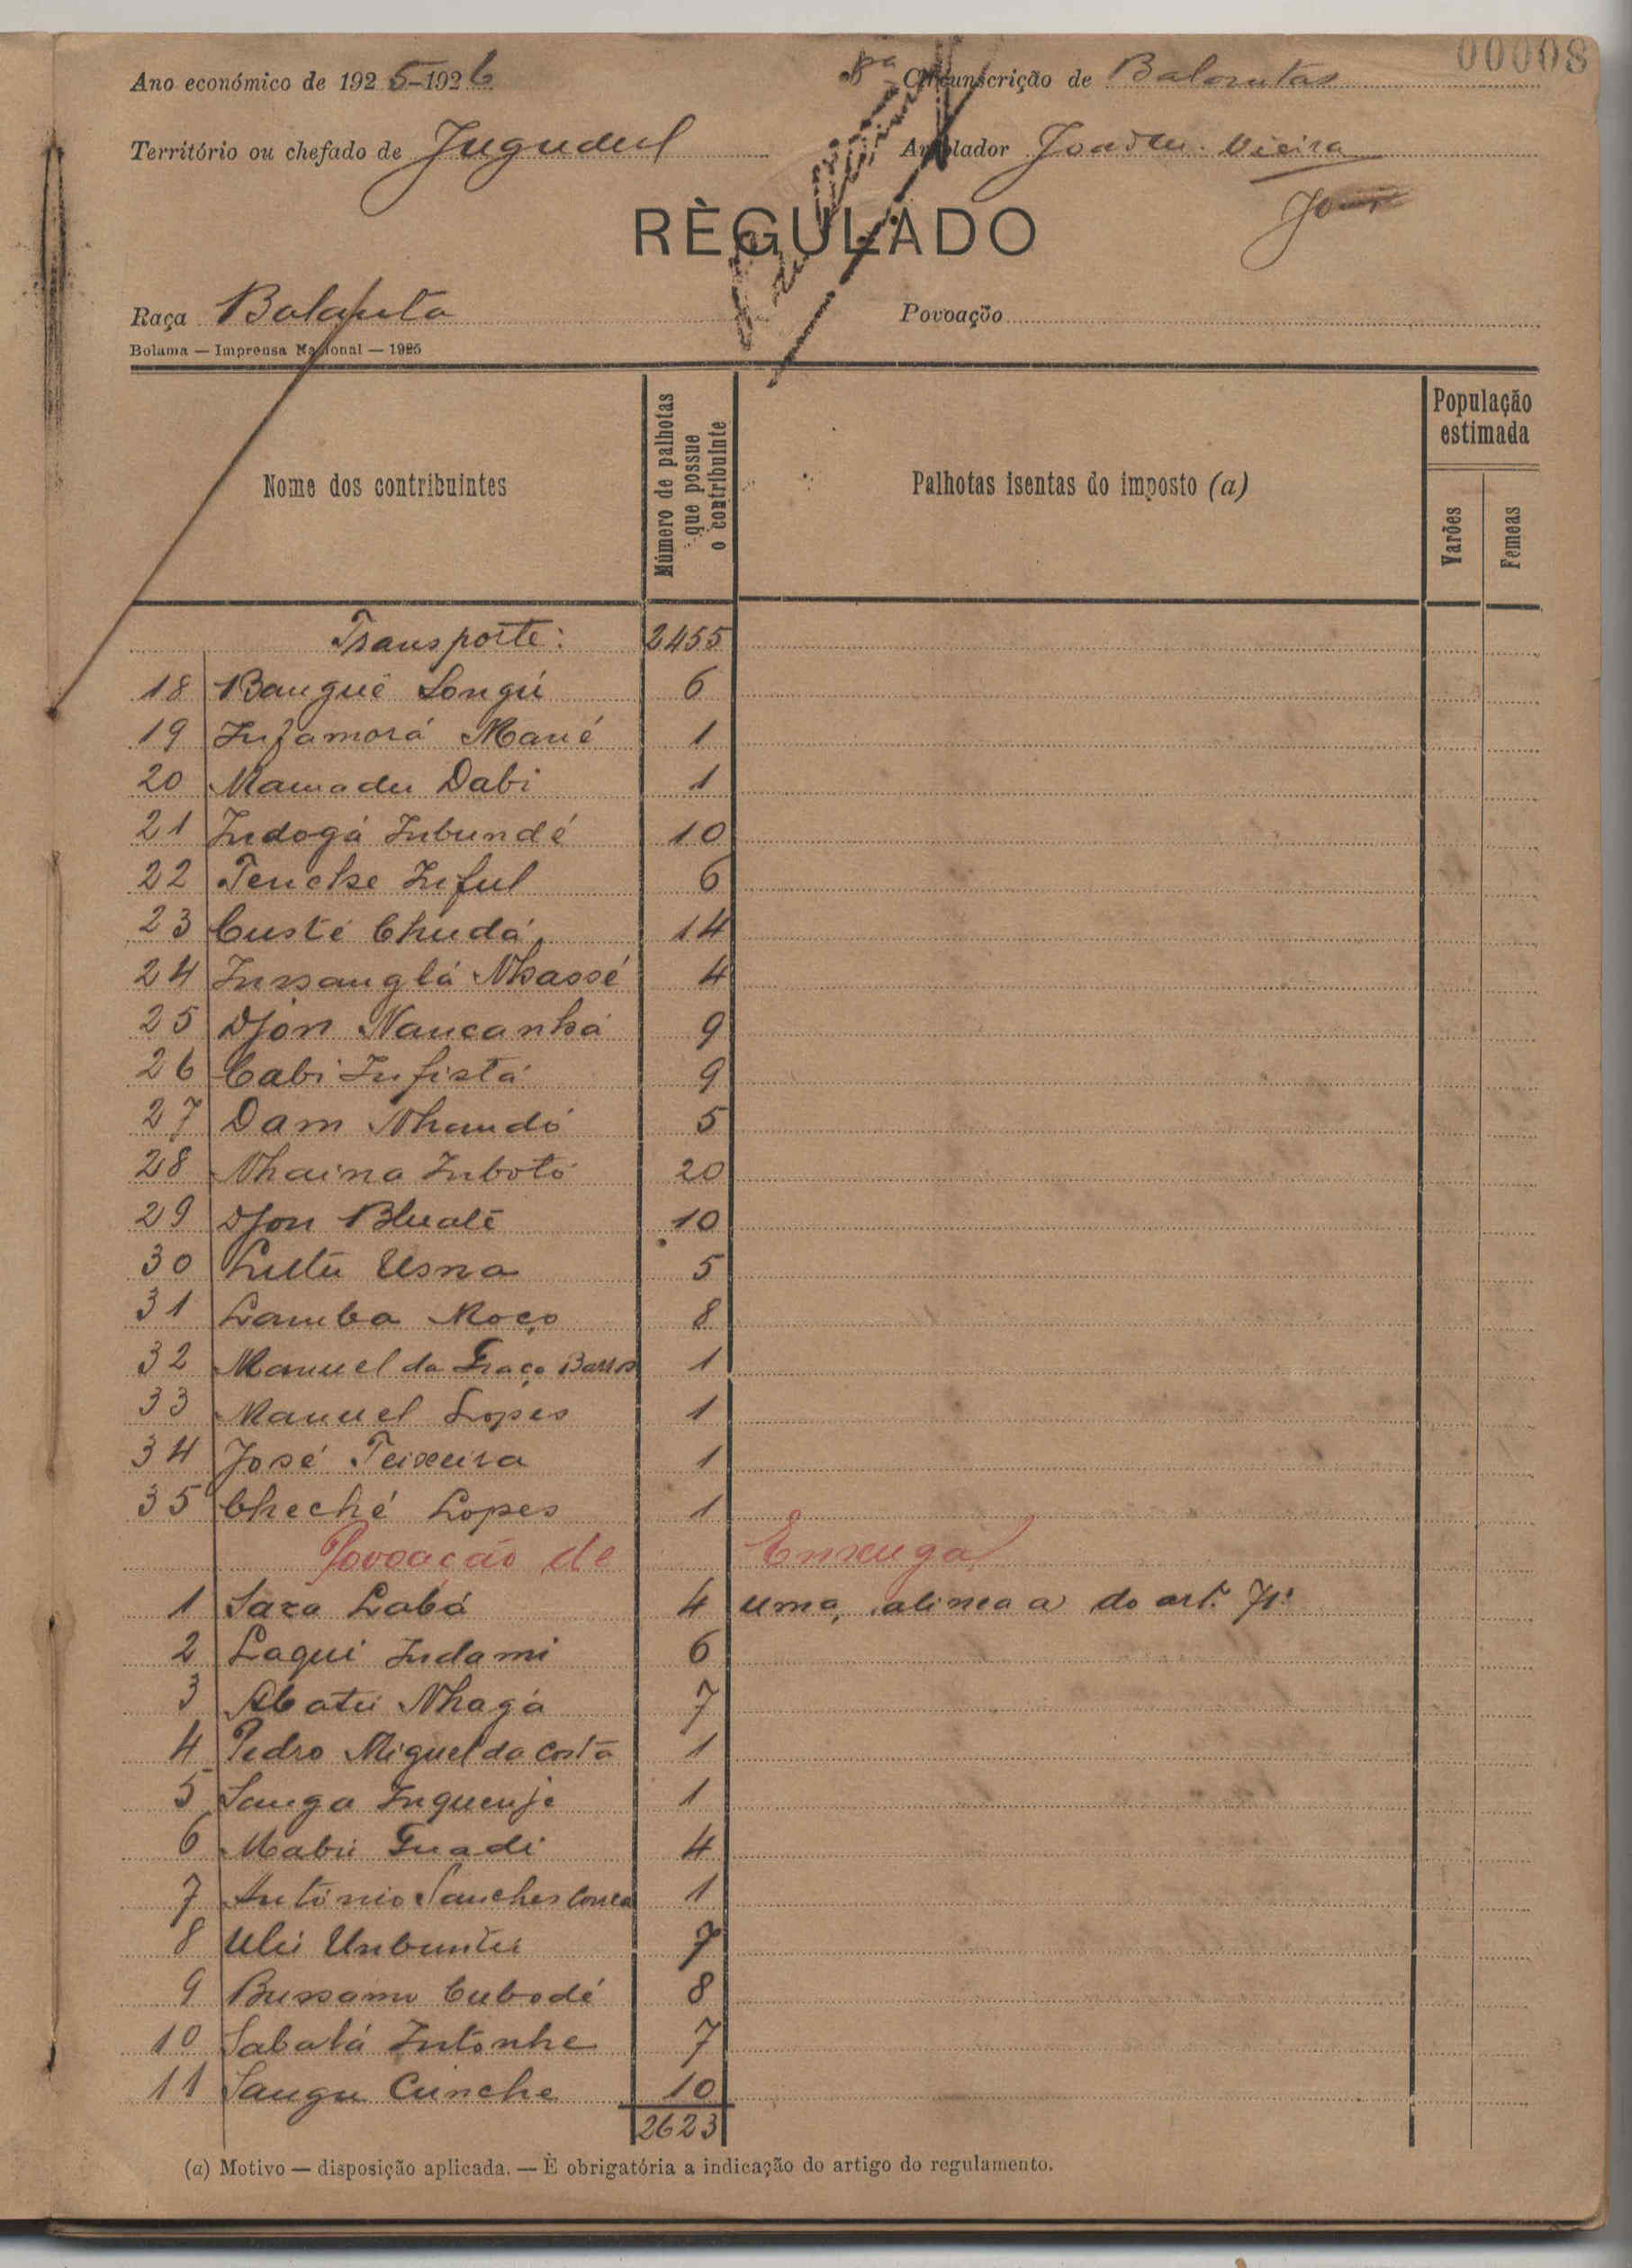 00008
Ano económico de 1925-1926
Circunscrição de Balantas
Território ou chefado de Jugudul
Arrolador Vieira
RÈGULADO
Raça Balanta
Povoação
Bolama — Imprensa Nacional — 1925
Nome dos contribuintes
Número de palhotas que possue o contribuinte
Palhotas isentas do imposto (a)
População estimada
Varões
Femeas
Transporte: 2455
18 Banguê Longú 6
19 Infamorá Mané 1
20 Mamadu Dabi 1
21 Indogá Inbundé 10
22 Tenche Inful 6
23 Custé Chudá 14
24 Inssanglá Nhassé 4
25 Djon Nancanhá 9
26 Cabi Infistá 9
27 Dam Nhandó 5
28 Nhaina Inbotó 20
29 Djon Blualé 10
30 Lutú Usna 5
31 Lamba Moço 8
32 Manuel da Graça Barros 1
33 Manuel Lopes 1
34 José Teixeira 1
35 Cheché Lopes 1
Povoação de Enxuga
1 Saza Labá 4 uma, alinea a do art.
2 Laqui Indami 6
3 Abatú Nhagá 7
4 Pedro Miguel da Costa 1
5 Sanga Inquenje 1
6 Mabú Guadi 4
7 António Sanches Correa 1
8 Ulú Unbuntú 7
9 Bussamu Cubodé 8
10 Sabalá Intonhe 7
11 Sangu Cunche 10
2623
(a) Motivo — disposição aplicada. — È obrigatória a indicação do artigo do regulamento.